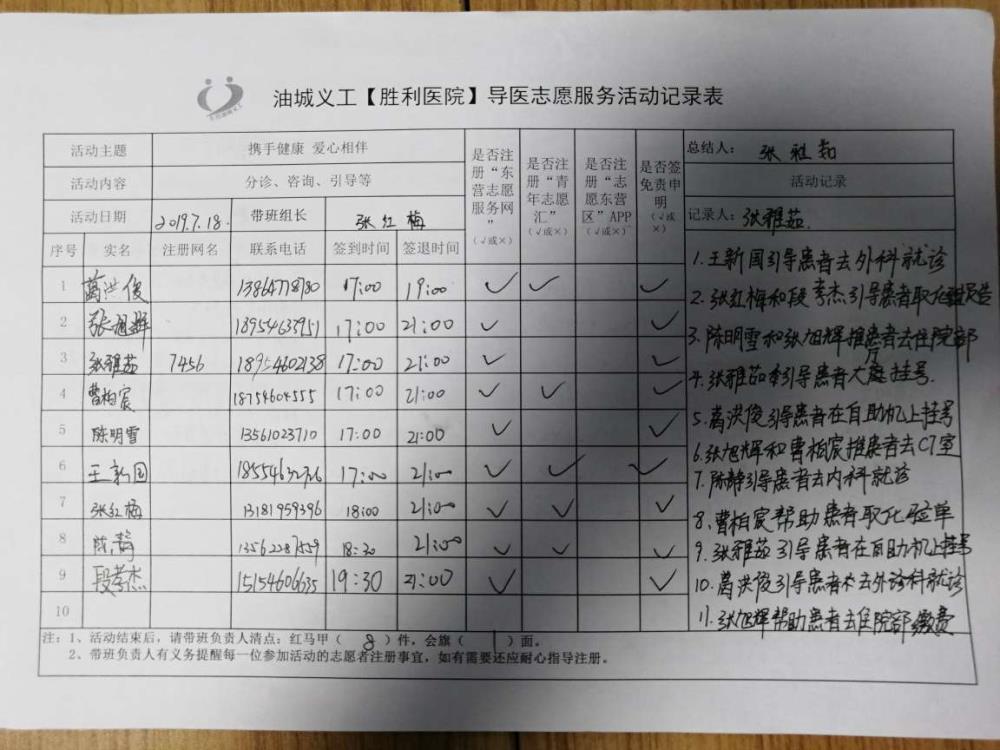 油城义工【胜利医院】导医志愿服务活动记录表
活动主题 携手健康 爱心相伴
活动内容 分诊、咨询、引导等
活动日期 2019.7.18. 带班组长 张红梅
序号 实名 注册网名 联系电话 签到时间 签退时间
是否注册“东营志愿服务网” (√或×)
是否注册“青年志愿汇” (√或×)
是否注册“志愿东营区”APP (√或×)
是否签免责申明 (√或×)
总结人: 张雅茹
活动记录
记录人: 张雅茹.
1 葛洪俊 13864778780 17:00 19:00 √ √ √
2 张旭辉 18954633951 17:00 21:00 √ √
3 张雅茹 7456 18954602138 17:00 21:00 √ √
4 曹柏宸 18754604555 17:00 21:00 √ √ √
5 陈明雪 13561023710 17:00 21:00 √ √
6 王新国 17:00 21:00 √ √ √
7 张红梅 13181959396 18:00 21:00 √ √ √
8 陈静 13562287559 18:30 21:00 √ √ √
9 段孝杰 15154606635 19:30 21:00 √ √
10
1.王新国引导患者去外科就诊
2.张红梅和段孝杰引导患者取化验报告
3.陈明雪和张旭辉推患者去住院部
4.张雅茹引导患者大厅挂号.
5.葛洪俊引导患者在自助机上挂号
6.张旭辉和曹柏宸推患者去CT室
7.陈静引导患者去内科就诊
8.曹柏宸帮助患者取化验单
9.张雅茹引导患者在自助机上挂号
10.葛洪俊引导患者去外诊科就诊
11.张旭辉帮助患者去住院部缴费
注:1、活动结束后,请带班负责人清点:红马甲( 8 )件,会旗( 1 )面。
2、带班负责人有义务提醒每一位参加活动的志愿者注册事宜,如有需要还应耐心指导注册。